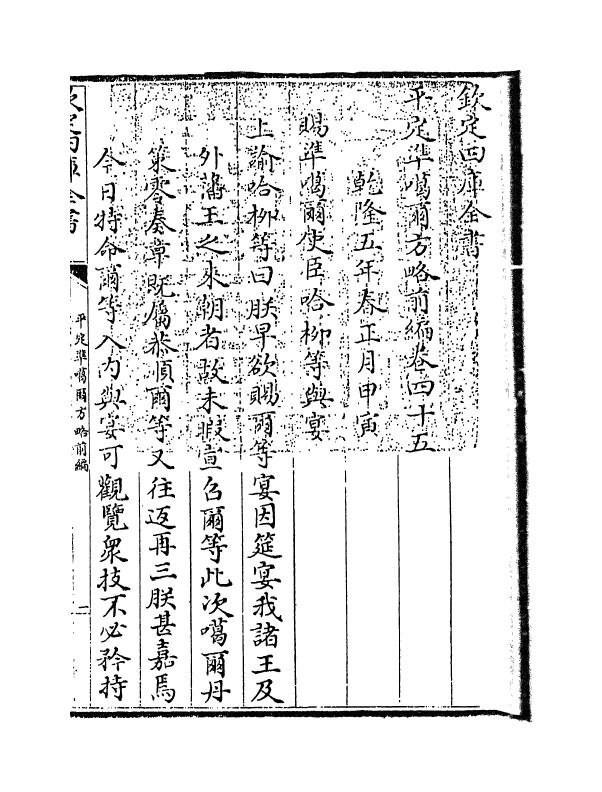 欽定四庫全書
平定準噶爾方略前編卷四十五
乾隆五年春正月甲寅
賜準噶爾使臣哈柳等與宴
上諭哈柳等曰朕早欲賜爾等宴因筵宴我諸王及
外藩王之來朝者故未暇宣召爾等此次噶爾丹
策零奏章既屬恭順爾等又往返再三朕甚嘉焉
今日特命爾等入内與宴可觀覽衆技不必矜持
欽定四庫全書
平定準噶爾方略前編